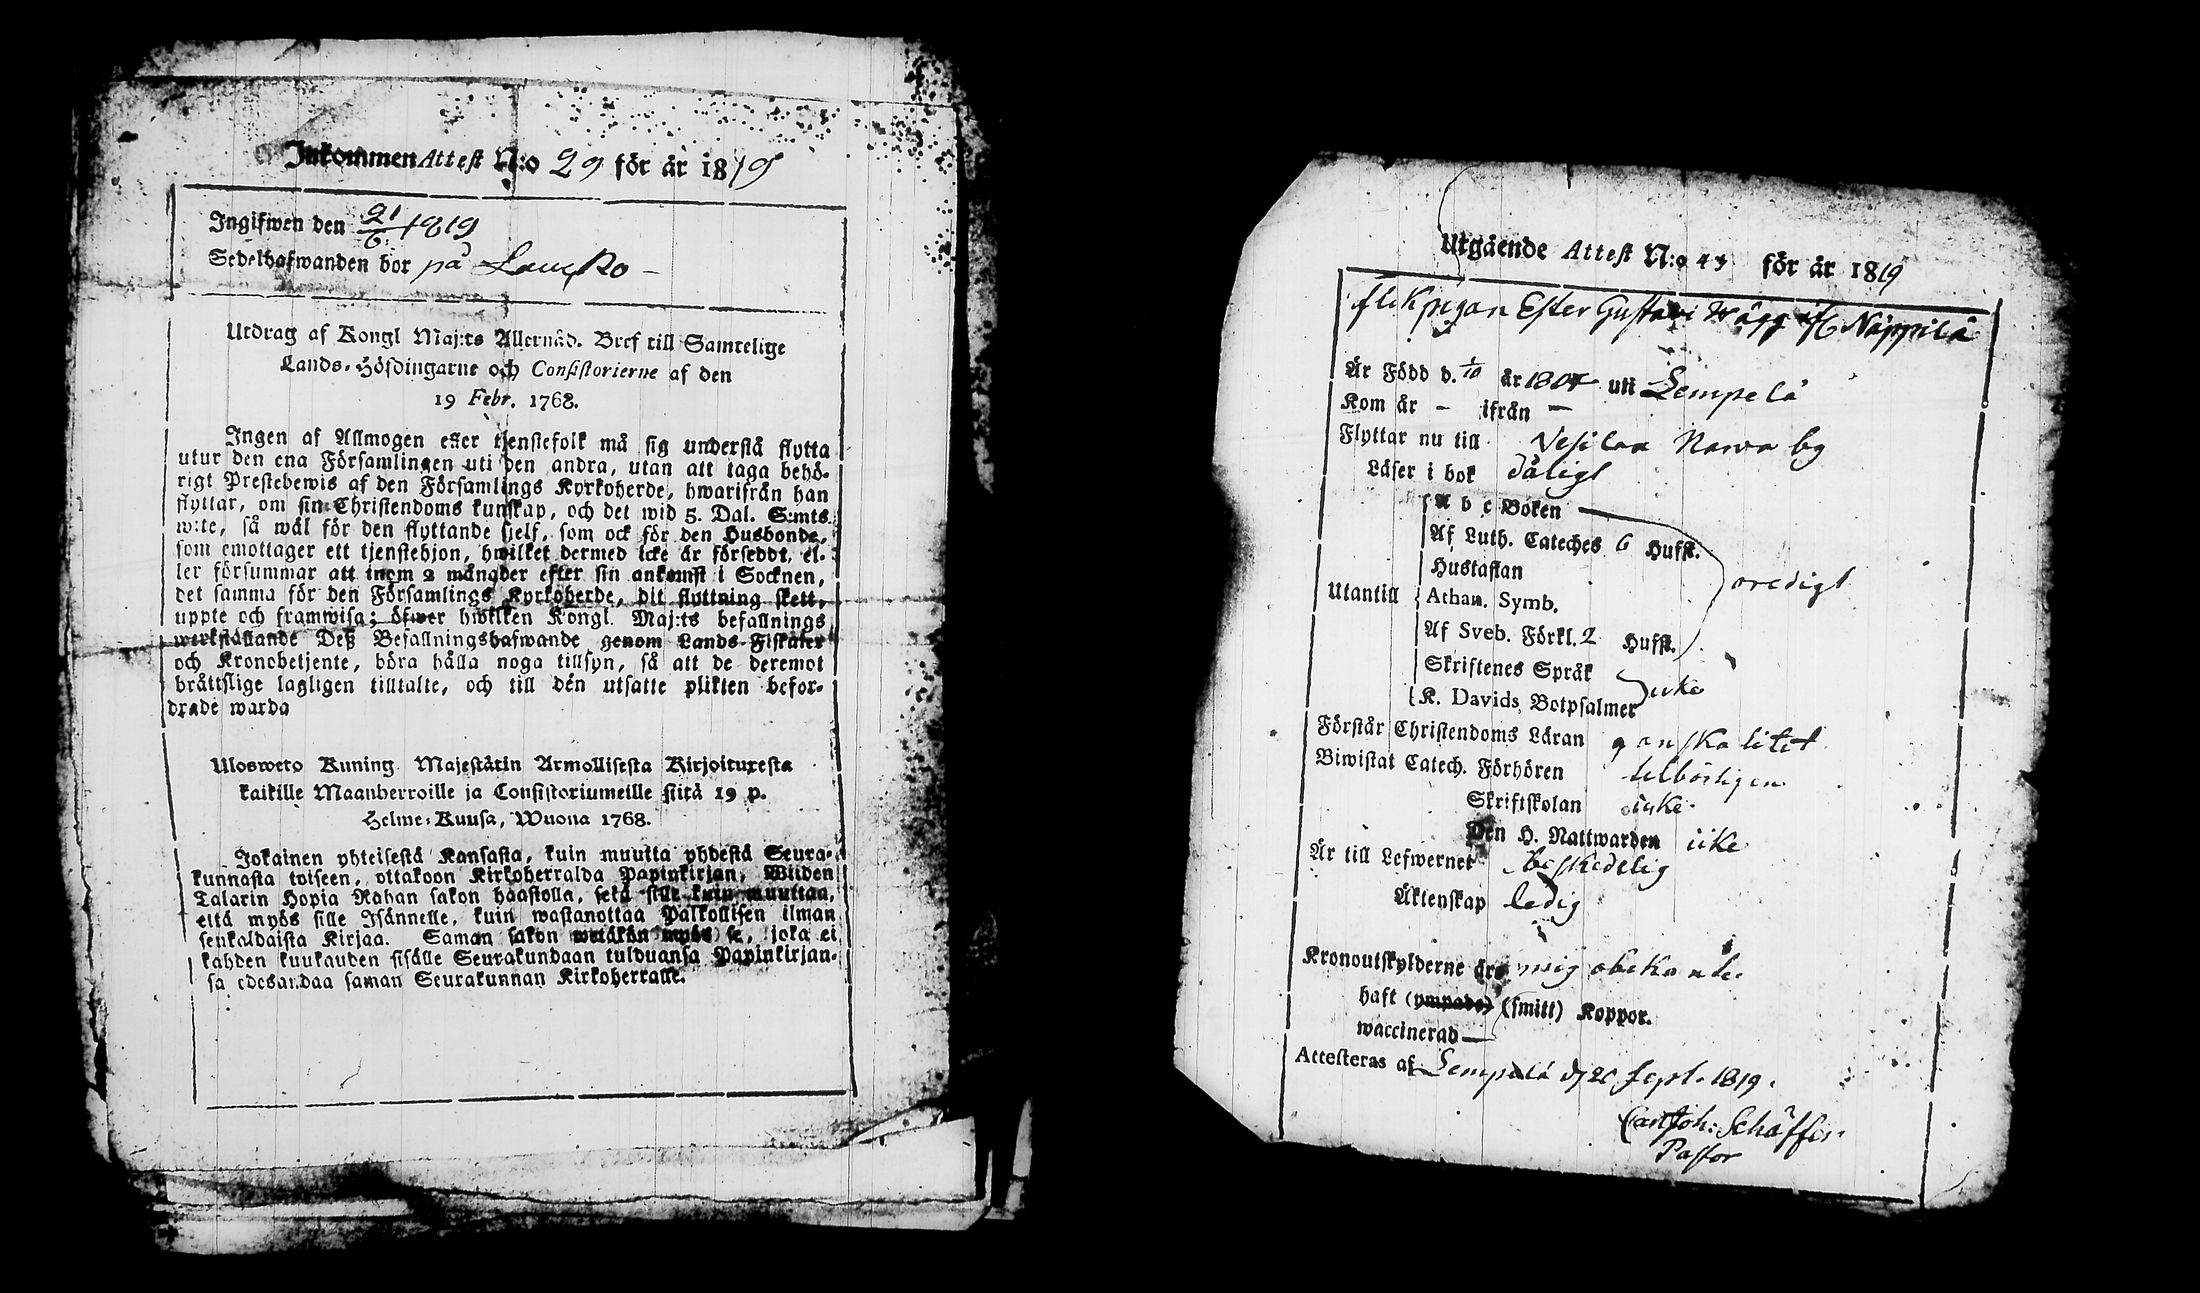 Inkommen Attest N:o 29 för år 1819
Ingifwen den 21/6 1819
Sedelhafwanden bor på Lau
Utdrag af Kongl Maj:ts Allernåd. Bref till Samtelige
Lands-Höfdingarne och Consistorierne af den
19 Febr. 1768.
Ingen af Allmogen eller tjenstefolk må sig understå flytta
utur den ena Församlingen uti den andra, utan att taga behö-
rigt Prestebewis af den Församlings Kyrkoherde, hwarifrån han
flyttar, om sin Christendoms kunskap, och det wid 5. Dal. S:mts
w:te, så wäl för den flyttande sjelf, som ock för den Husbonde,
som emottager ett tjenstehjon, hwilket dermed icke är försedt, el-
ler försummar att inom 2 månader efter sin ankomst i Socknen,
det samma för den Församlings Kyrkoherde, dit flyttning skett,
uppte och framwisa; öfwer hwilken Kongl. Maj:ts befallnings
werkställande Deß Befallningshafwande genom Lands-Fiskaler
och Kronobetjente, böra hålla noga tillsyn, så att de deremot
bråttslige lagligen tilltalte, och till den utsatte plikten befor-
drade warda
Ulosweto Kuning. Majestätin Armollisesta Kirjoituxesta
kaikille Maanherroille ja Consistoriumeille siitä 19 p.
Helme-Kuusa, Wuona 1768.
Jokainen yhteisestä Kansasta, kuin muutta yhdestä Seura-
kunnasta toiseen, ottakoon Kirkoherralda Papinkirjan, Wiiden
Talarin Hopia Rahan sakon haastolla, sekä sille kuin muuttaa,
että myös sille Isännelle, kuin wastanottaa Palkollisen ilman
senkaldaista Kirjaa. Saman sakon wetäkön myös se, joka ei
kahden kuukauden sisälle Seurakundaan tulduansa Papinkirjan-
sa edesandaa saman Seurakunnan Kirkoherralle.
Utgående Attest N:o 43 för år 1819
flickpigan Ester Gustavi Wägg Näppilä
Är Född d. 1/10 år 1804 uti Lempelä
Kom år - ifrån -
Flyttar nu till Vesilax Narva by
Läser i bok dåligt
A b c Boken
Af Luth. Cateches 6 Hufst.
Hustaflan
Utantill Athan. Symb. oredigt
Af Sveb. Förkl. 2 Hufst.
Skriftenes Språk
K. Davids Botpsalmer icke
Förstår Christendoms Läran ganska litet
Biwistat Catech. Förhören tilbörligen
Skriftskolan icke
Den H. Nattwarden icke
Är till Lefwernet beskedelig
Äktenskap ledig
Kronoutskylderne äro mig obekante
haft (ympade) (smitt) Koppor.
waccinerad —
Attesteras af Lempälä d. 26 Sept. 1819.
Carl Joh: Schäffer
Pastor